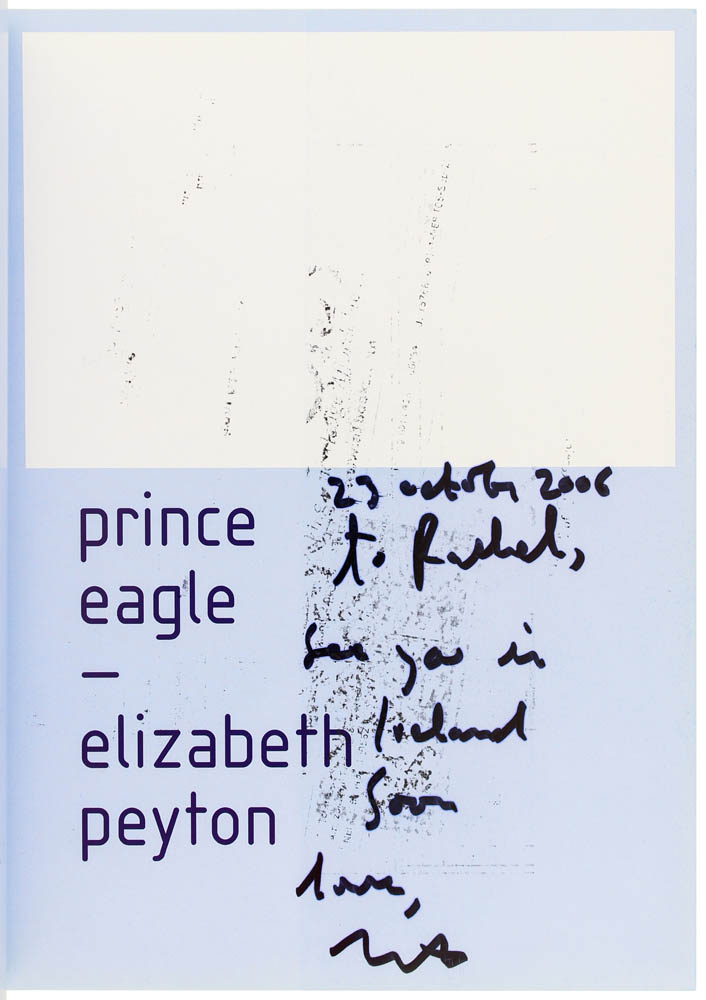 prince
eagle
–
elizabeth
peyton
23 october 2006
to Rachel,
see you in
Ireland
soon
love,